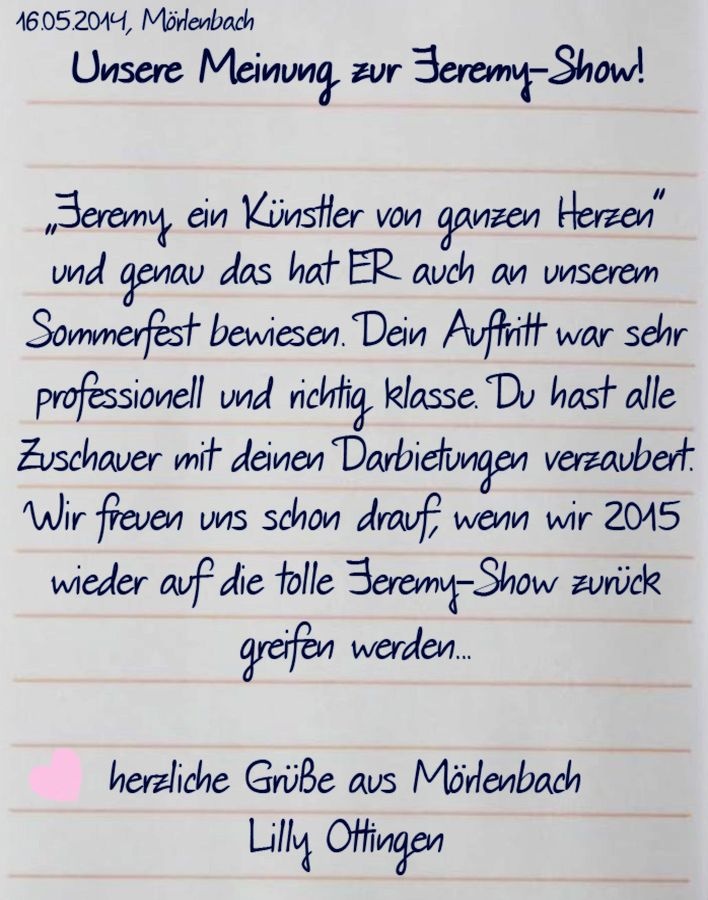 16.05.2014, Mörlenbach
Unsere Meinung zur Jeremy-Show!
„Jeremy, ein Künstler von ganzen Herzen“
und genau das hat ER auch an unserem
Sommerfest bewiesen. Dein Auftritt war sehr
professionell und richtig klasse. Du hast alle
Zuschauer mit deinen Darbietungen verzaubert.
Wir freuen uns schon drauf, wenn wir 2015
wieder auf die tolle Jeremy-Show zurück
greifen werden...
herzliche Grüße aus Mörlenbach
Lilly Ottingen